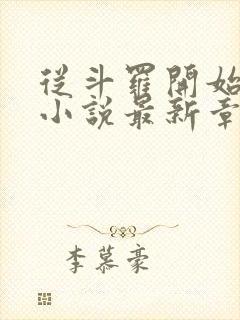 從斗羅開始
小說最新章
李慕豪